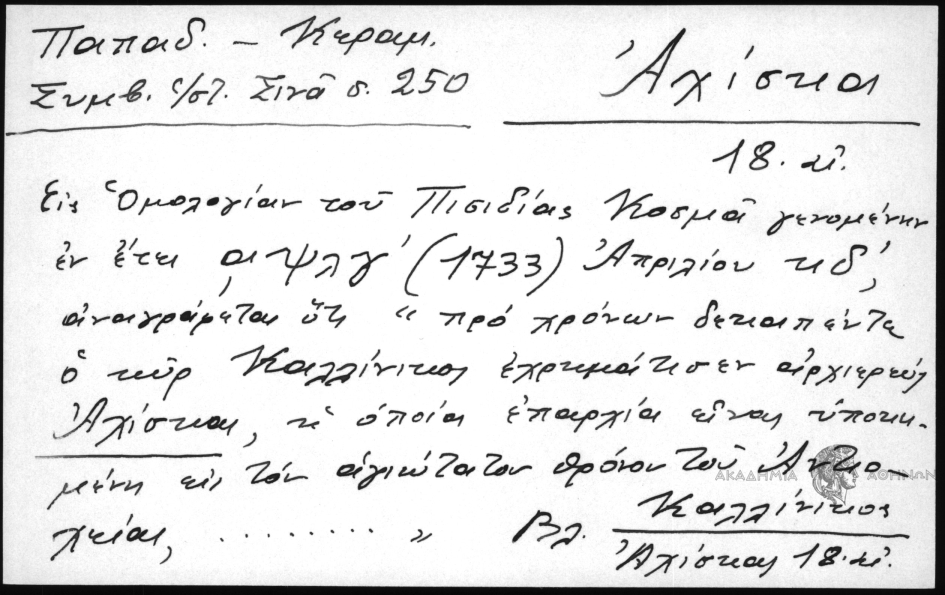 Παπαδ. – Κεραμ.
Συμβ. ἱ/στ. Σινᾶ σ. 250
Ἀχίσκα
18. αἰ.
Εἰς Ὁμολογίαν τοῦ Πισιδίας Κοσμᾶ γενομένην
ἐν ἔτει ͵αψλγ΄ (1733) Ἀπριλίου κδ΄,
ἀναγράφεται ὅτι “ πρό χρόνων δεκαπέντε
ὁ κῦρ Καλλίνικος ἐχρημάτισεν ἀρχιερεύς
Ἀχίσκας, ἡ ὁποία ἐπαρχία εἶναι ὑποκει-
μένη εἰς τόν ἁγιώτατον θρόνον τοῦ Ἀντιο-
χείας, ........ „ Βλ. Καλλίνικος
Ἀχίσκας 18. αἰ.
ΑΚΑΔΗΜΙΑ ΑΘΗΝΩΝ